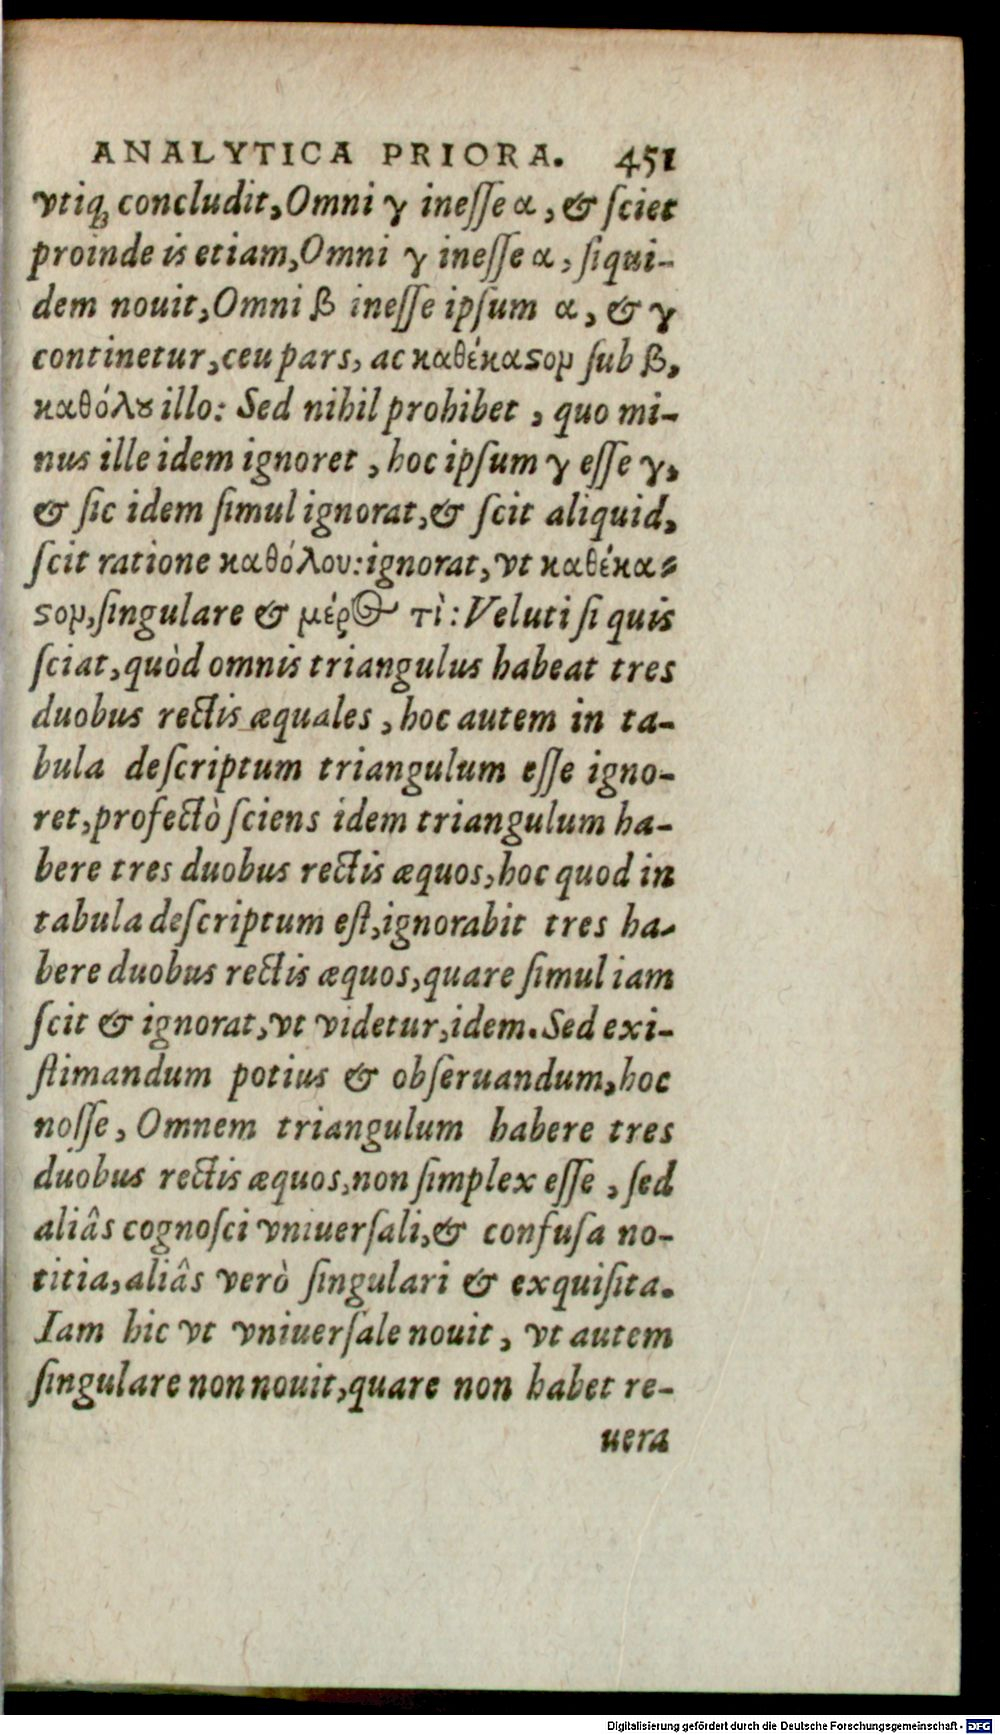 ANALYTICA PRIORA. 451
vtiq; concludit, Omni γ inesse α, & sciet
proinde is etiam, Omni γ inesse α, siqui-
dem nouit, Omni β inesse ipsum α, & γ
continetur, ceu pars, ac καθέκαϛομ sub β,
καθόλȣ illo: Sed nihil prohibet, quo mi-
nus ille idem ignoret, hoc ipsum γ esse γ,
& sic idem simul ignorat, & scit aliquid,
scit ratione καθόλου: ignorat, vt καθέκα-
ϛομ, singulare & μέρος τὶ: Veluti si quis
sciat, quòd omnis triangulus habeat tres
duobus rectis æquales, hoc autem in ta-
bula descriptum triangulum esse igno-
ret, profectò sciens idem triangulum ha-
bere tres duobus rectis æquos, hoc quod in
tabula descriptum est, ignorabit tres ha-
bere duobus rectis æquos, quare simul iam
scit & ignorat, vt videtur, idem. Sed exi-
stimandum potius & obseruandum, hoc
nosse, Omnem triangulum habere tres
duobus rectis æquos, non simplex esse, sed
aliâs cognosci vniuersali, & confusa no-
titia, aliâs verò singulari & exquisita.
Iam hic vt vniuersale nouit, vt autem
singulare non nouit, quare non habet re-
uera
Digitalisierung gefördert durch die Deutsche Forschungsgemeinschaft - DFG